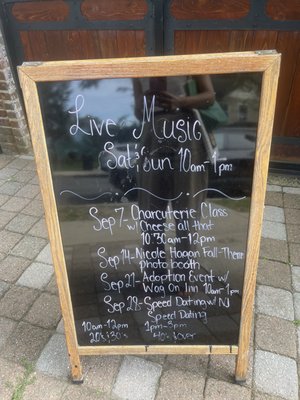 Live Music
Sat & Sun 10am-1pm
Sep 7- Charcuterie Class
w/ Cheese all that
10:30am-12pm
Sep 14- Nicole Hogan Fall-Them
photo booth
Sep 21- Adoption Event w/
Wag On Inn 10am-1pm
Sep 28- Speed Dating w/ NJ
Speed Dating
10am-12pm 1pm-3pm
20s & 30s 40s & over